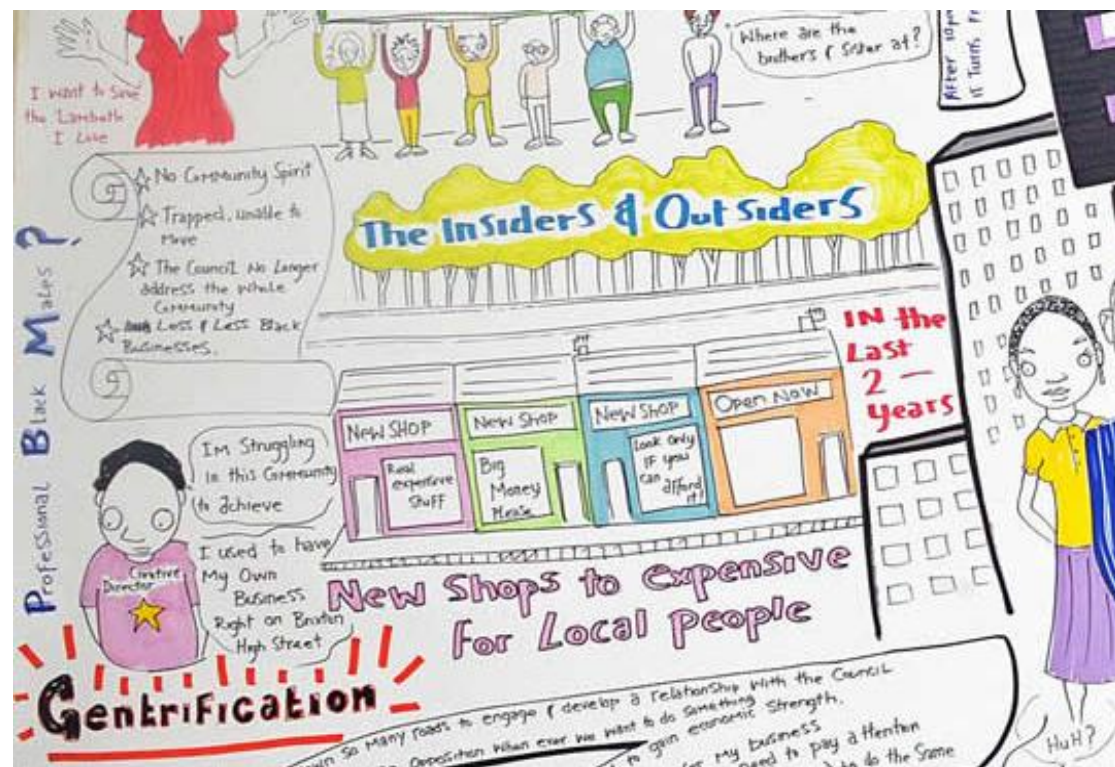 I want to Save
the Lambeth
I Love
Where are the
brothers & Sister at?
After 10pm
it Turns
No Community Spirit
Trapped, unable to
Move
The Council No Longer
address the whole
Community
Less & Less Black
Businesses.
The Insiders & Outsiders
IN the
Last
2 –
Years
NEW SHOP
New Shop
New SHOP
Open Now
Real
expensive
Stuff
Big
Money
Please
Look only
IF you
can afford
it!
Professional Black Males?
I'm Struggling
in this Community
to achieve
I used to have
My Own
Business
Right on Brixton
High Street
Creative
Director
New Shops to expensive
For Local people
Gentrification
So Many roads to engage & develop a relationship with the Council
Opposition when ever we want to do something
to gain economic Strength.
My business
need to pay attention
to do the Same
HuH?